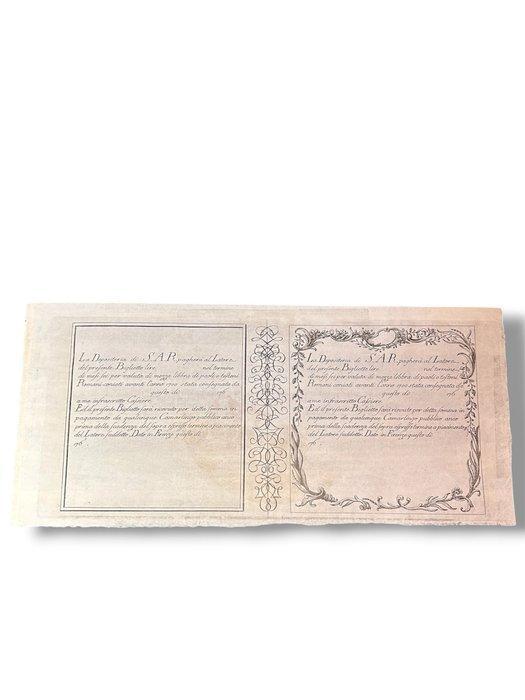 La Depositeria di S. A. R. pagherà al Latore
del presente Biglietto lire nel termine
di mesi sei per valuta di mezza libbra di paoli e testoni
Romani coniati avanti l'anno 1700 stata consegnata da
questo dì 176
a me infrascritto Cassiere.
Ed il presente Biglietto sarà ricevuto per detta somma in
pagamento da qualunque Camarlingo pubblico anco
prima della scadenza del sopra espresso termine a piacimento
del Latore suddetto. Dato in Firenze questo dì
176
La Depositeria di S. A. R. pagherà al Latore
del presente Biglietto lire nel termine
di mesi sei per valuta di mezza libbra di paoli e testoni
Romani coniati avanti l'anno 1700 stata consegnata da
questo dì 176
a me infrascritto Cassiere.
Ed il presente Biglietto sarà ricevuto per detta somma in
pagamento da qualunque Camarlingo pubblico anco
prima della scadenza del sopra espresso termine a piacimento
del Latore suddetto. Dato in Firenze questo dì
176